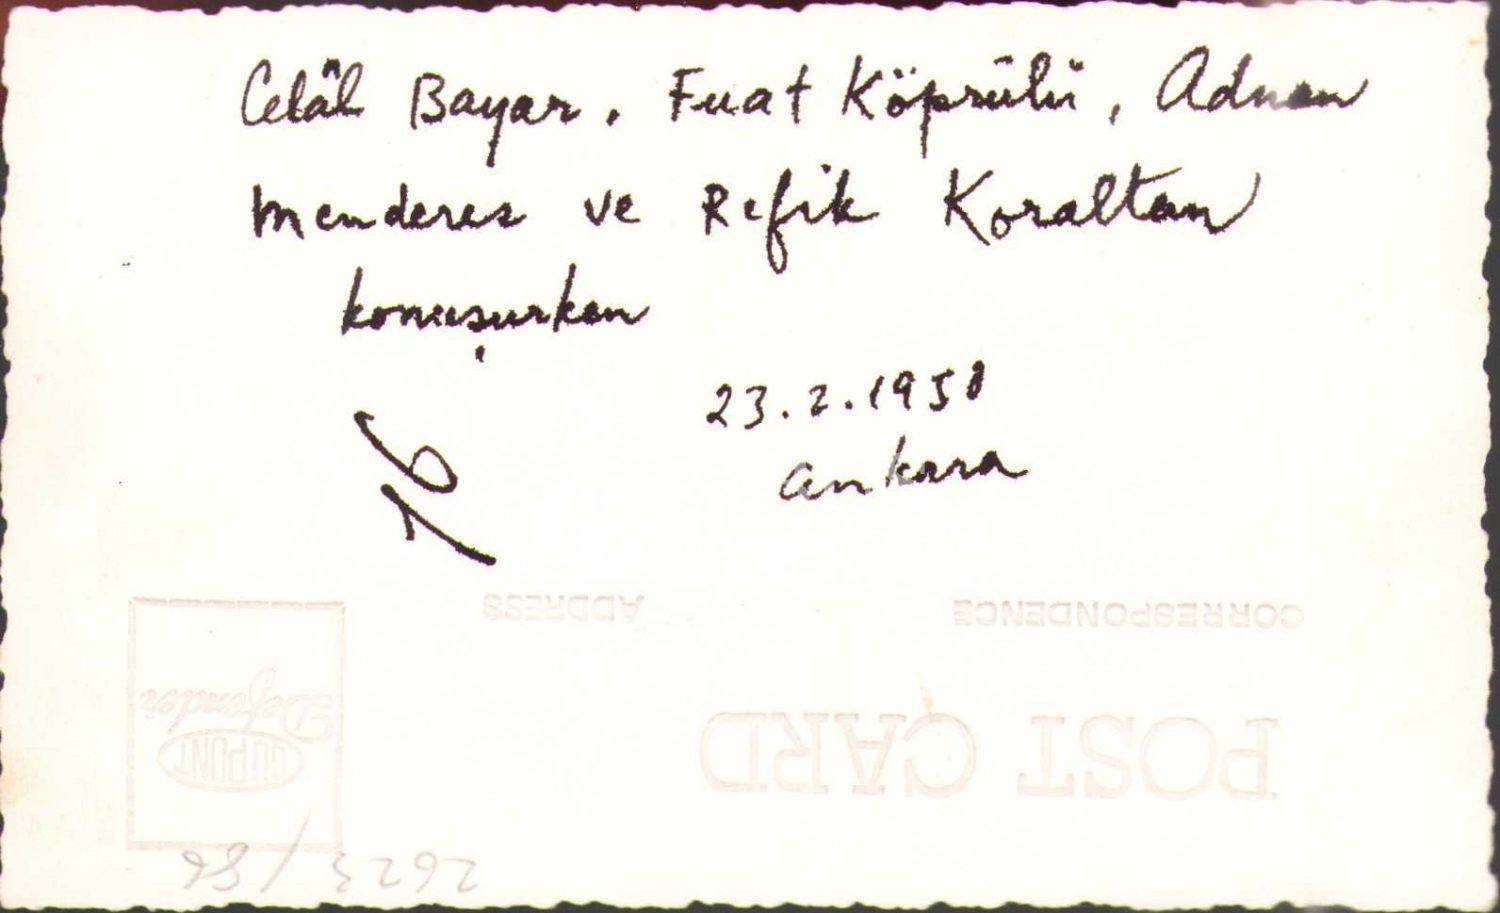 Celâl Bayar, Fuat Köprülü, Adnan
Menderes ve Refik Koraltan
konuşurken
23.2.1950
Ankara
16
ADDRESS
CORRESPONDENCE
POST CARD
Defender
DUPONT
2623/86